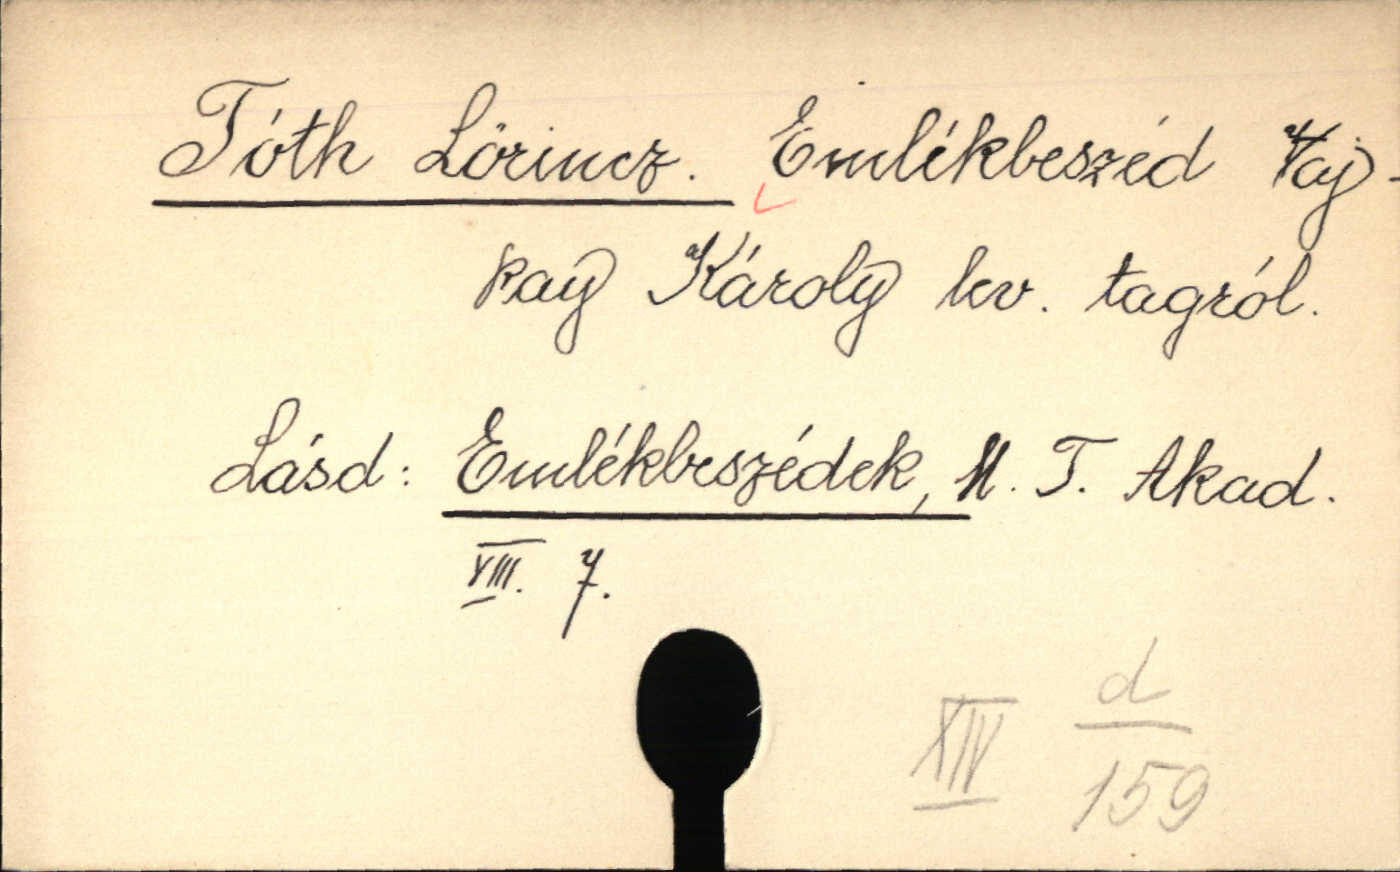 Tóth Lőrincz. Emlékbeszéd Vaj-
kay Károly lev. tagról.
Lásd: Emlékbeszédek, M. T. Akad.
VIII. 7.
XIV d/159